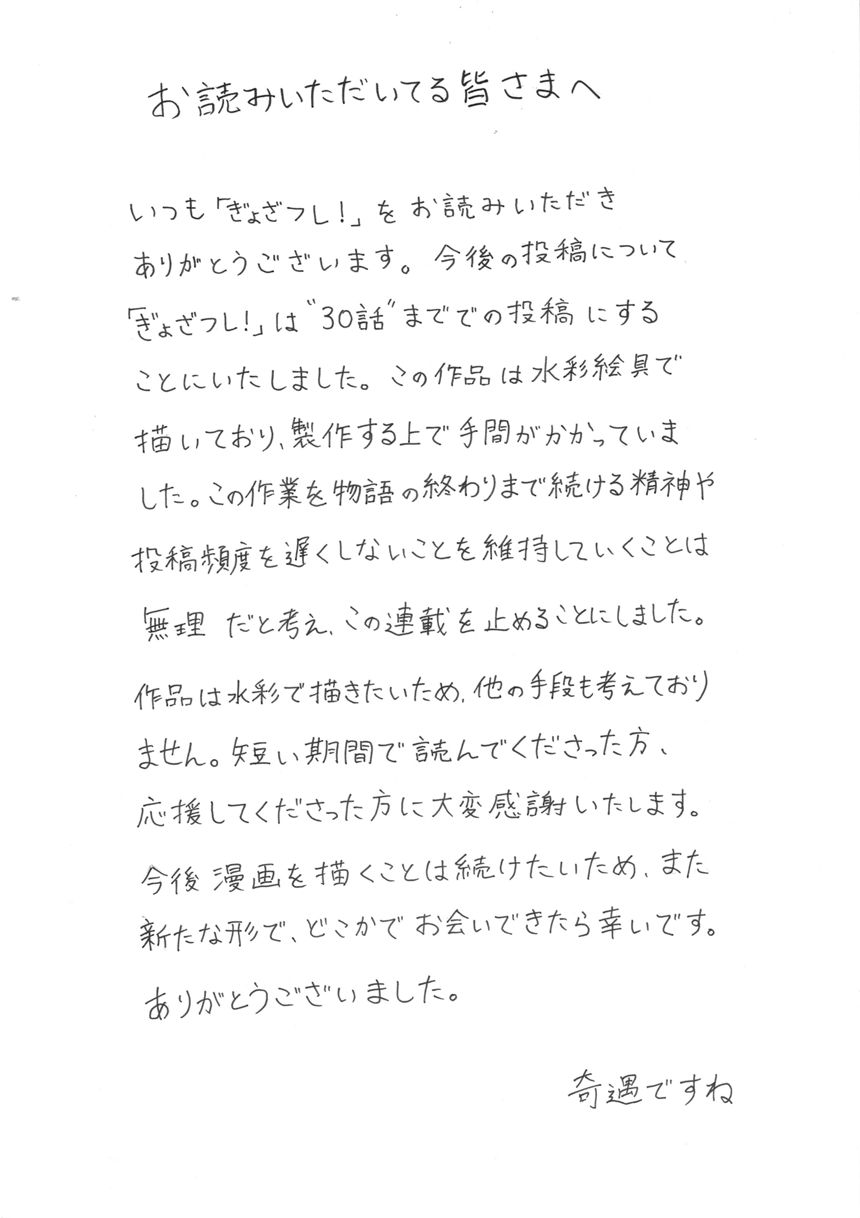 お読みいただいてる皆さまへ
いつも「ぎょざつし!」をお読みいただき
ありがとうございます。今後の投稿について
「ぎょざつし!」は"30話"まででの投稿にする
ことにいたしました。この作品は水彩絵具で
描いており、製作する上で手間がかかっていま
した。この作業を物語の終わりまで続ける精神や
投稿頻度を遅くしないことを維持していくことは
無理だと考え、この連載を止めることにしました。
作品は水彩で描きたいため、他の手段も考えており
ません。短い期間で読んでくださった方、
応援してくださった方に大変感謝いたします。
今後漫画を描くことは続けたいため、また
新たな形で、どこかでお会いできたら幸いです。
ありがとうございました。
奇遇ですね